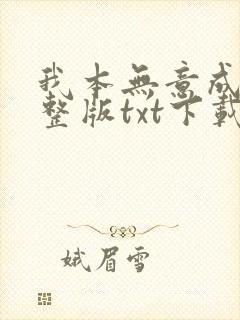 我本無意成
整版txt下載
娥眉雪